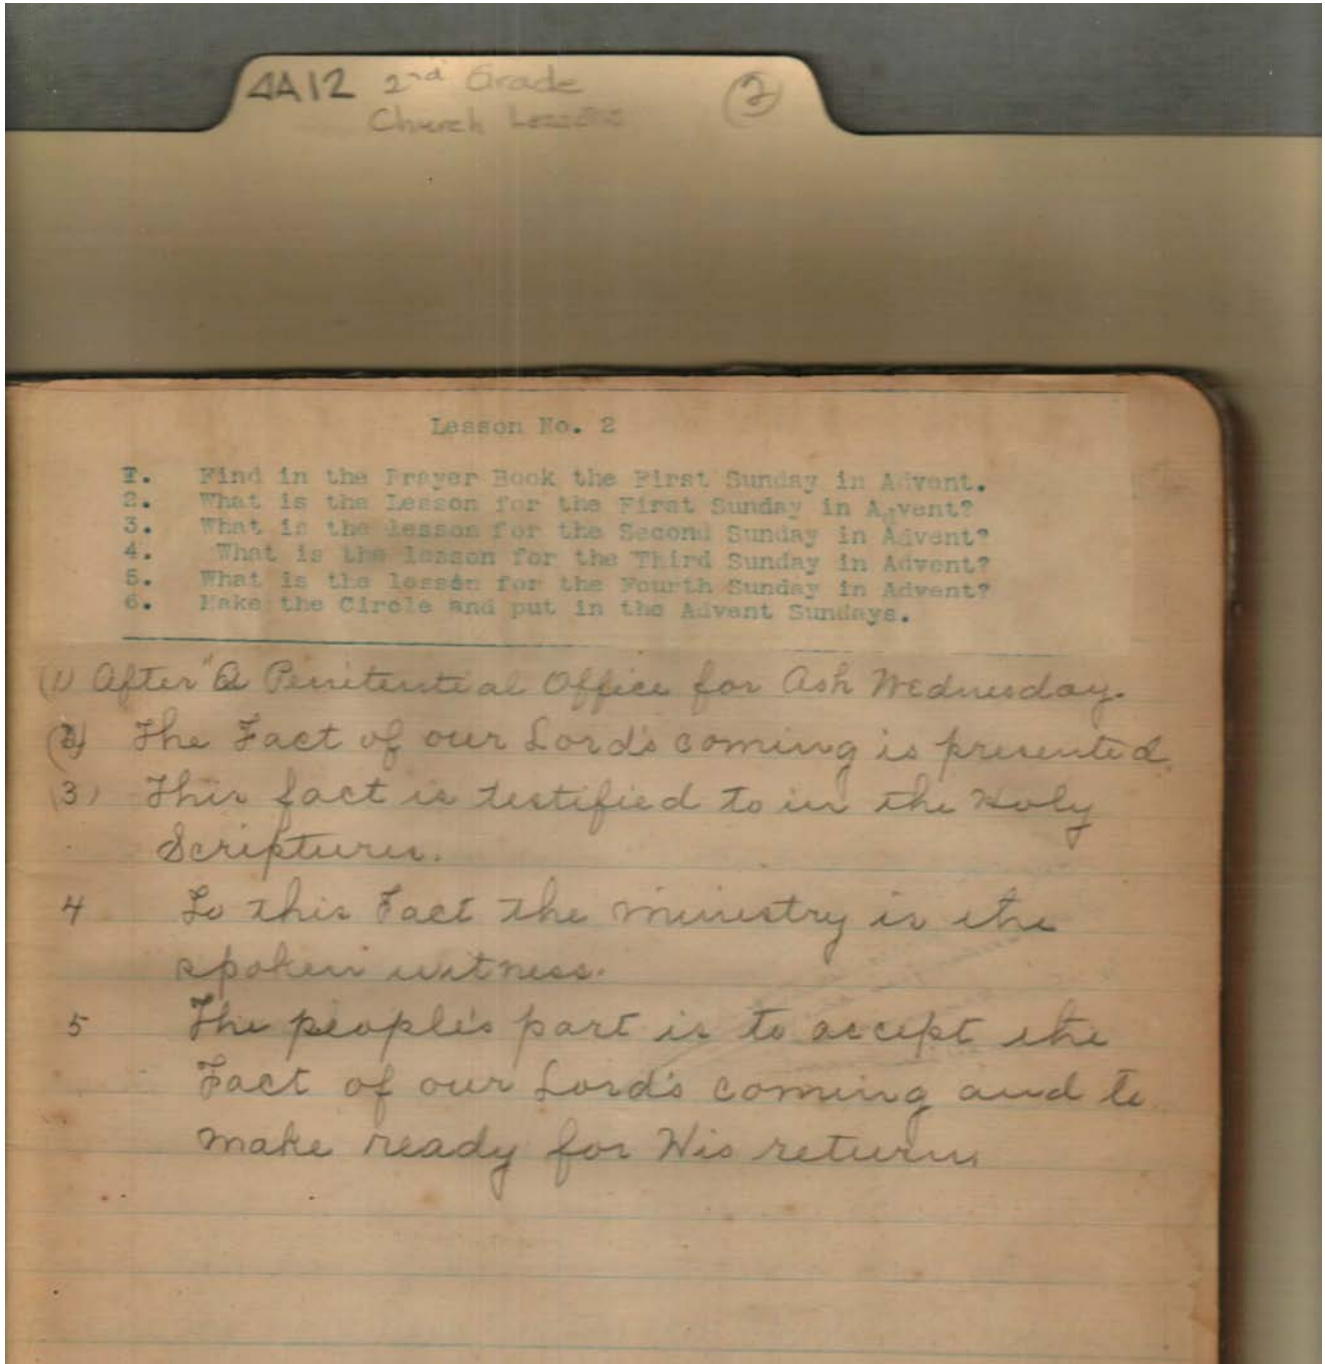 4A12 2nd Grade
Church Lessons
2
Lesson No. 2
1. Find in the Prayer Book the First Sunday in Advent.
2. What is the Lesson for the First Sunday in Advent?
3. What is the lesson for the Second Sunday in Advent?
4. What is the lesson for the Third Sunday in Advent?
5. What is the lesson for the Fourth Sunday in Advent?
6. Make the Circle and put in the Advent Sundays.
(1) After "A Penitential Office for Ash Wednesday.
(2) The Fact of our Lord's coming is presented.
(3) This fact is testified to in the Holy
Scriptures.
4 To this Fact the ministry is the
spoken witness.
5 The people's part is to accept the
Fact of our Lord's coming and to
make ready for His return.